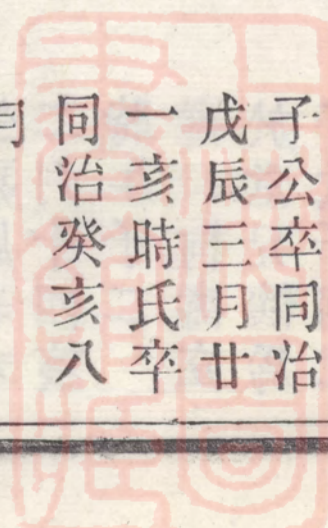 子公卒同治
戊辰三月廿
一亥時氏卒
同治癸亥八
月